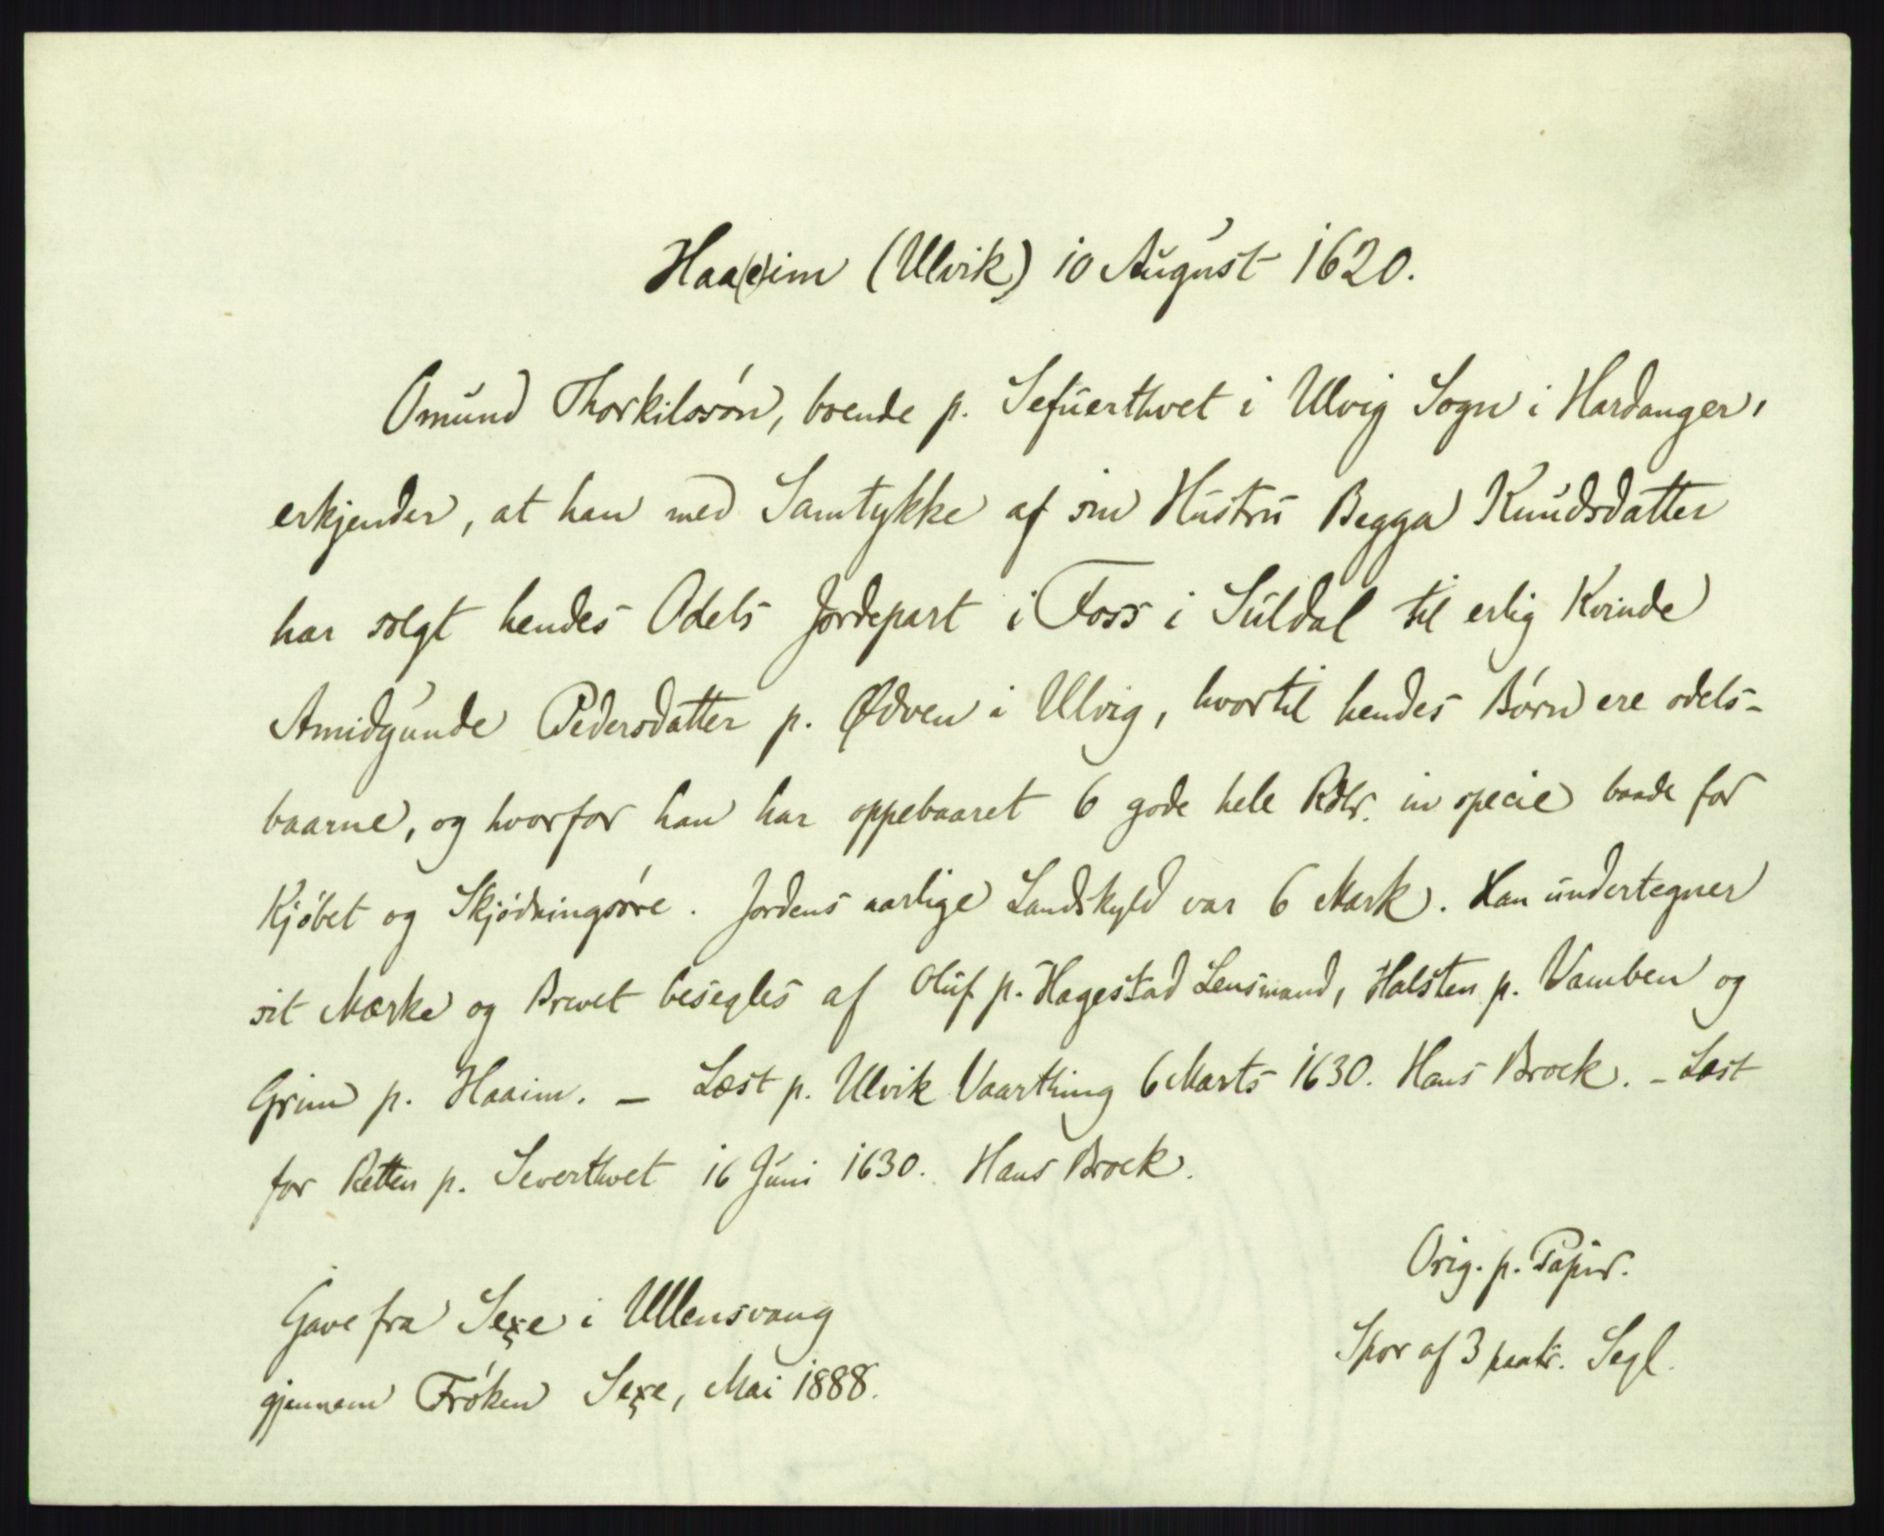 Haa(e)im (Ulvik) 10 August 1620.
Omund Thorkilssøn, boende p. Sefuerthvet i Ulvig Sogn i Hardanger,
erkjender, at han med Samtykke af sin Hustru Begga Knudsdatter
har solgt hendes Odels Jordepart i Foss i Suldal til erlig Kvinde
Amidgunde Pedersdatter p. Ødven i Ulvig, hvortil hendes Børn ere odels-
baarne, og hvorfor han har oppebaaret 6 gode hele Rdlr. in specie baade for
Kjøbet og Skjødningsøre. Jordens aarlige Landskyld var 6 Mark. Han undertegner
sit Mærke og Brevet besegles af Oluf p. Hagestad Lensmand, Halsten p. Vamben og
Grim p. Haaim. – Læst p. Ulvik Vaarthing 6 Marts 1630. Hans Brock. – Læst
for Retten p. Severthvet 16 Juni 1630. Hans Brock.
Orig. p. Papir.
Spor af 3 paatr. Segl.
Gave fra Sexe i Ullensvang
gjennem Frøken Sexe, Mai 1888.